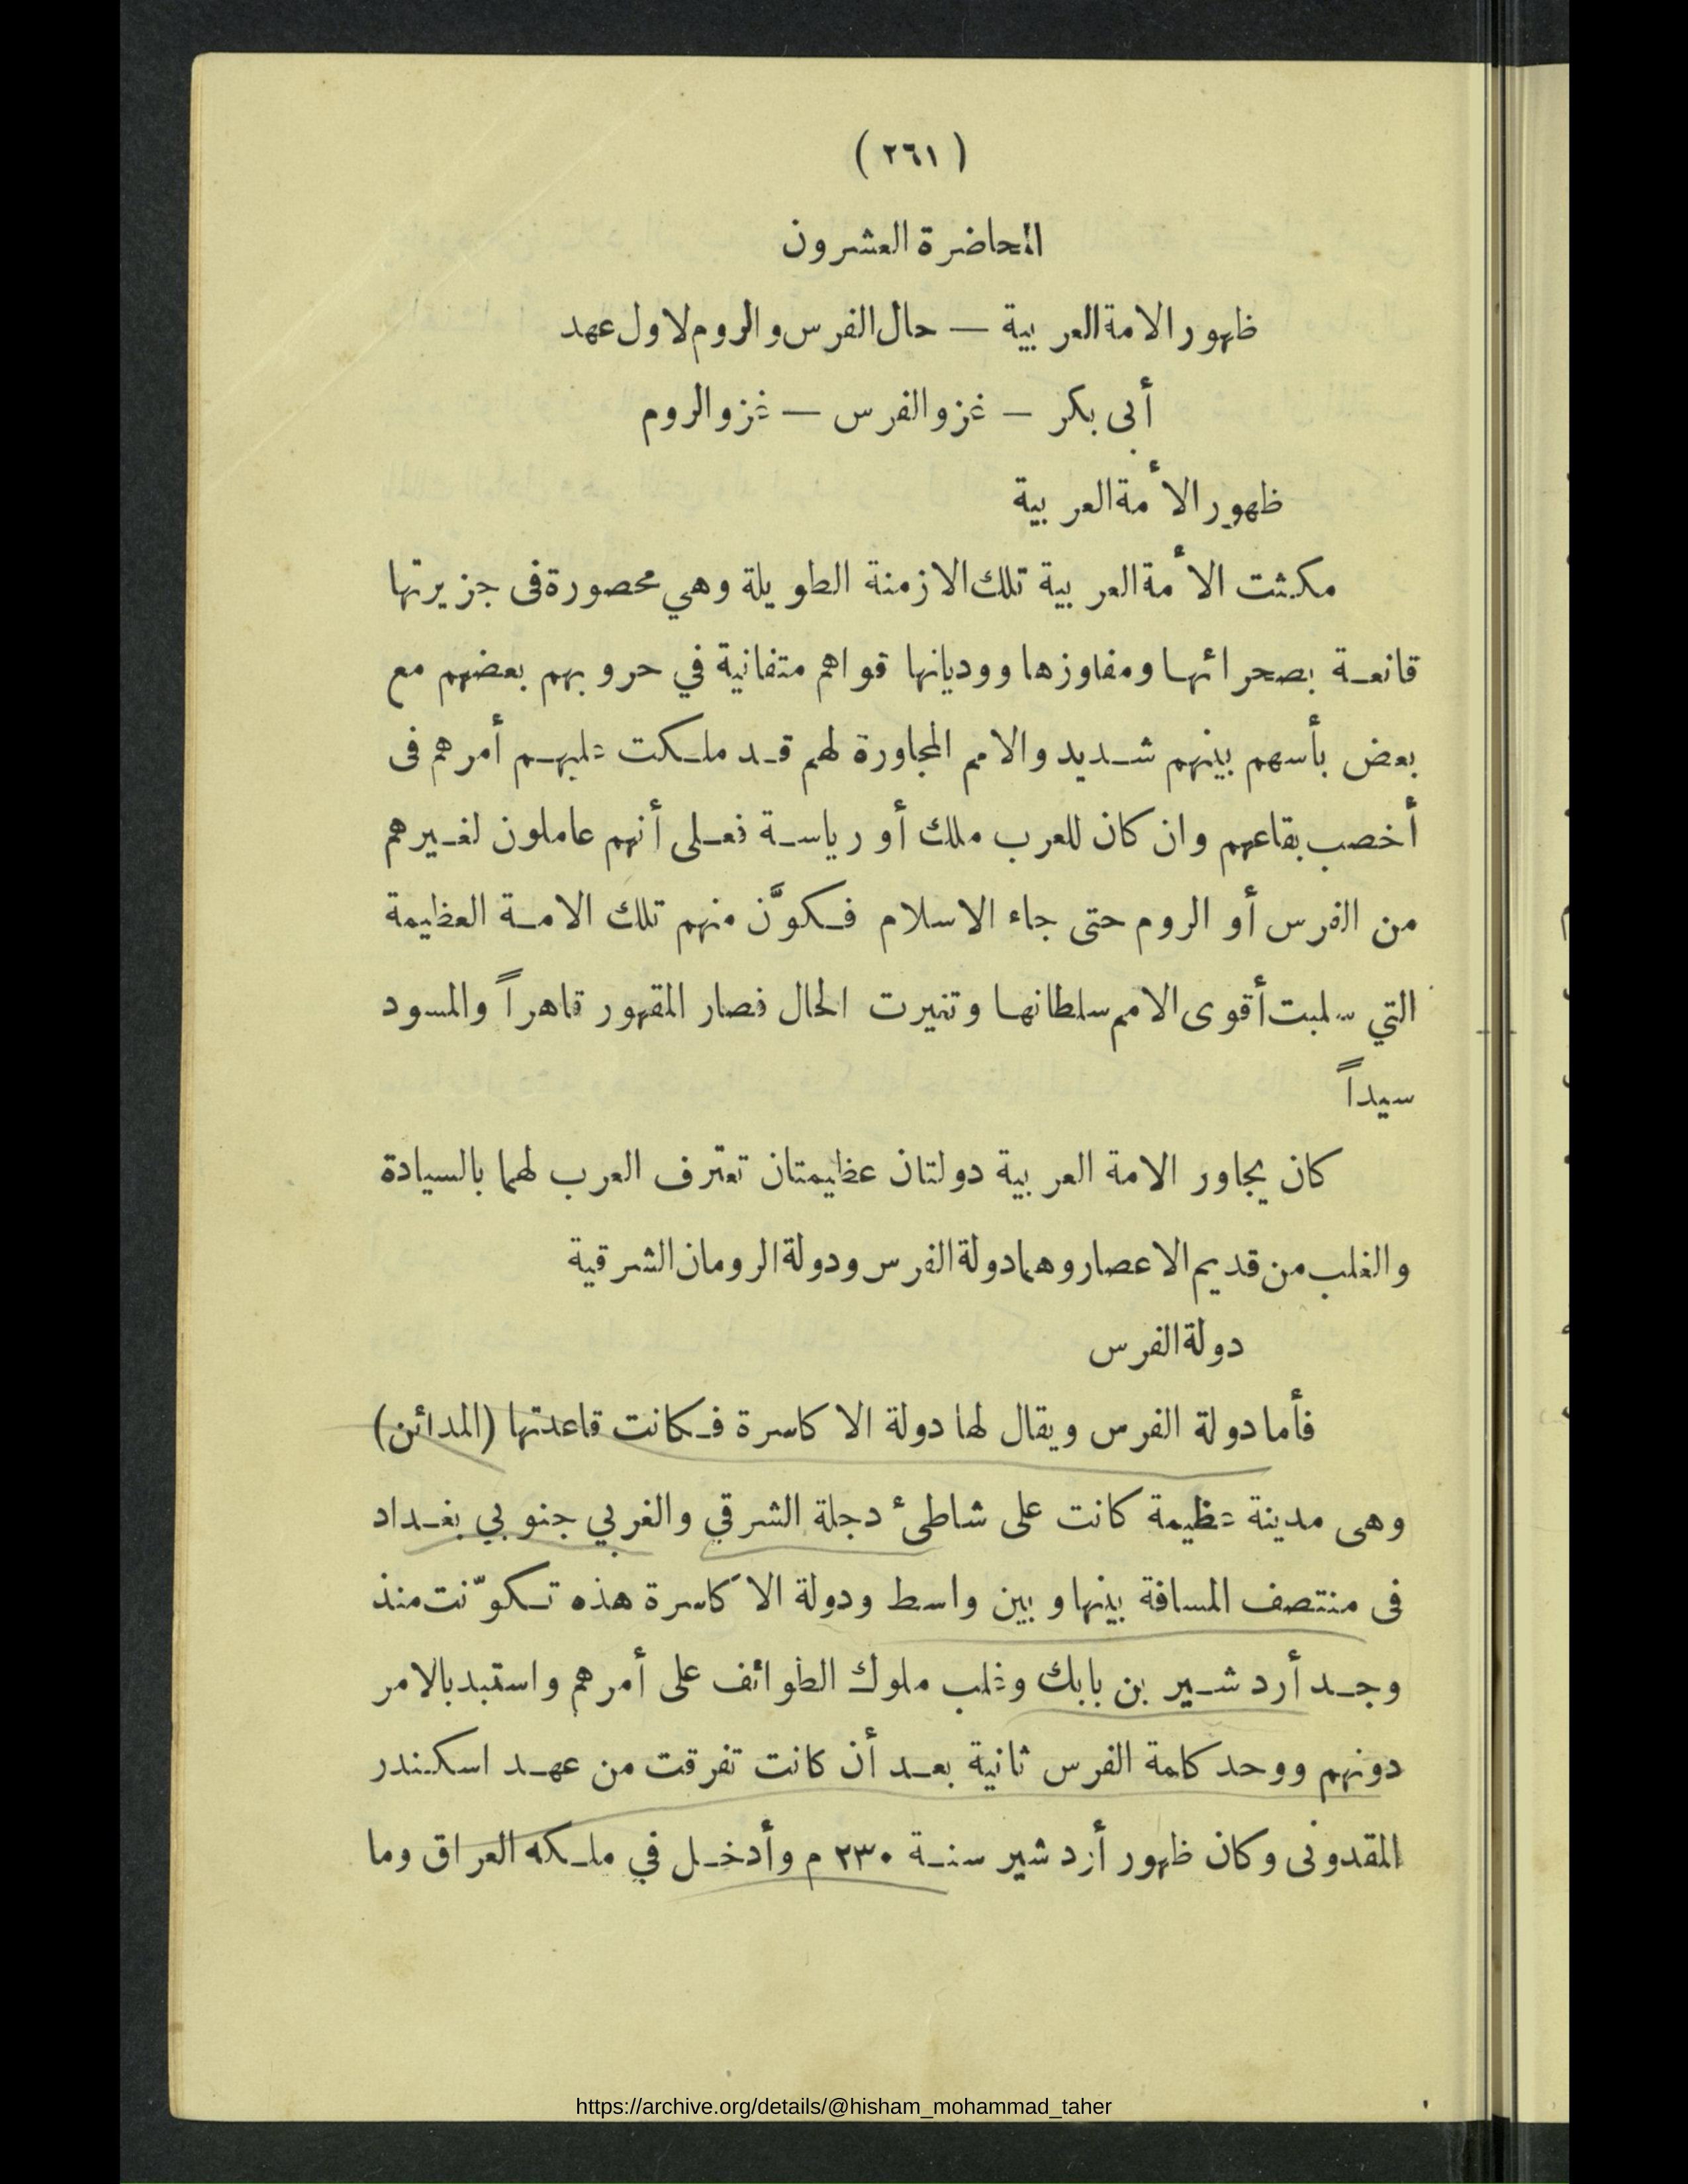 ( ٢٦١ )
المحاضرة العشرون
ظهور الامة العربية — حال الفرس والروم لاول عهد
أبى بكر — غزو الفرس — غزو الروم
ظهور الأمة العربية
مكثت الأمة العربية تلك الازمنة الطويلة وهي محصورة فى جزيرتها
قانعة بصحرائها ومفاوزها ووديانها قواهم متفانية في حروبهم بعضهم مع
بعض بأسهم بينهم شديد والامم المجاورة لهم قد ملكت عليهم أمرهم فى
أخصب بقاعهم وان كان للعرب ملك أو رياسة فعلى أنهم عاملون لغيرهم
من الفرس أو الروم حتى جاء الاسلام فكوَّن منهم تلك الامة العظيمة
التي سلبت أقوى الامم سلطانها وتغيرت الحال فصار المقهور قاهراً والمسود
سيداً
كان يجاور الامة العربية دولتان عظيمتان تعترف العرب لهما بالسيادة
والغلب من قديم الاعصار وهما دولة الفرس ودولة الرومان الشرقية
دولة الفرس
فأما دولة الفرس ويقال لها دولة الاكاسرة فكانت قاعدتها (المدائن)
وهى مدينة عظيمة كانت على شاطىء دجلة الشرقي والغربي جنوبي بغداد
فى منتصف المسافة بينها وبين واسط ودولة الاكاسرة هذه تكوّنت منذ
وجد أردشير بن بابك وغلب ملوك الطوائف على أمرهم واستبد بالامر
دونهم ووحد كلمة الفرس ثانية بعد أن كانت تفرقت من عهد اسكندر
المقدونى وكان ظهور أردشير سنة ٢٣٠ م وأدخل في ملكه العراق وما
https://archive.org/details/@hisham_mohammad_taher